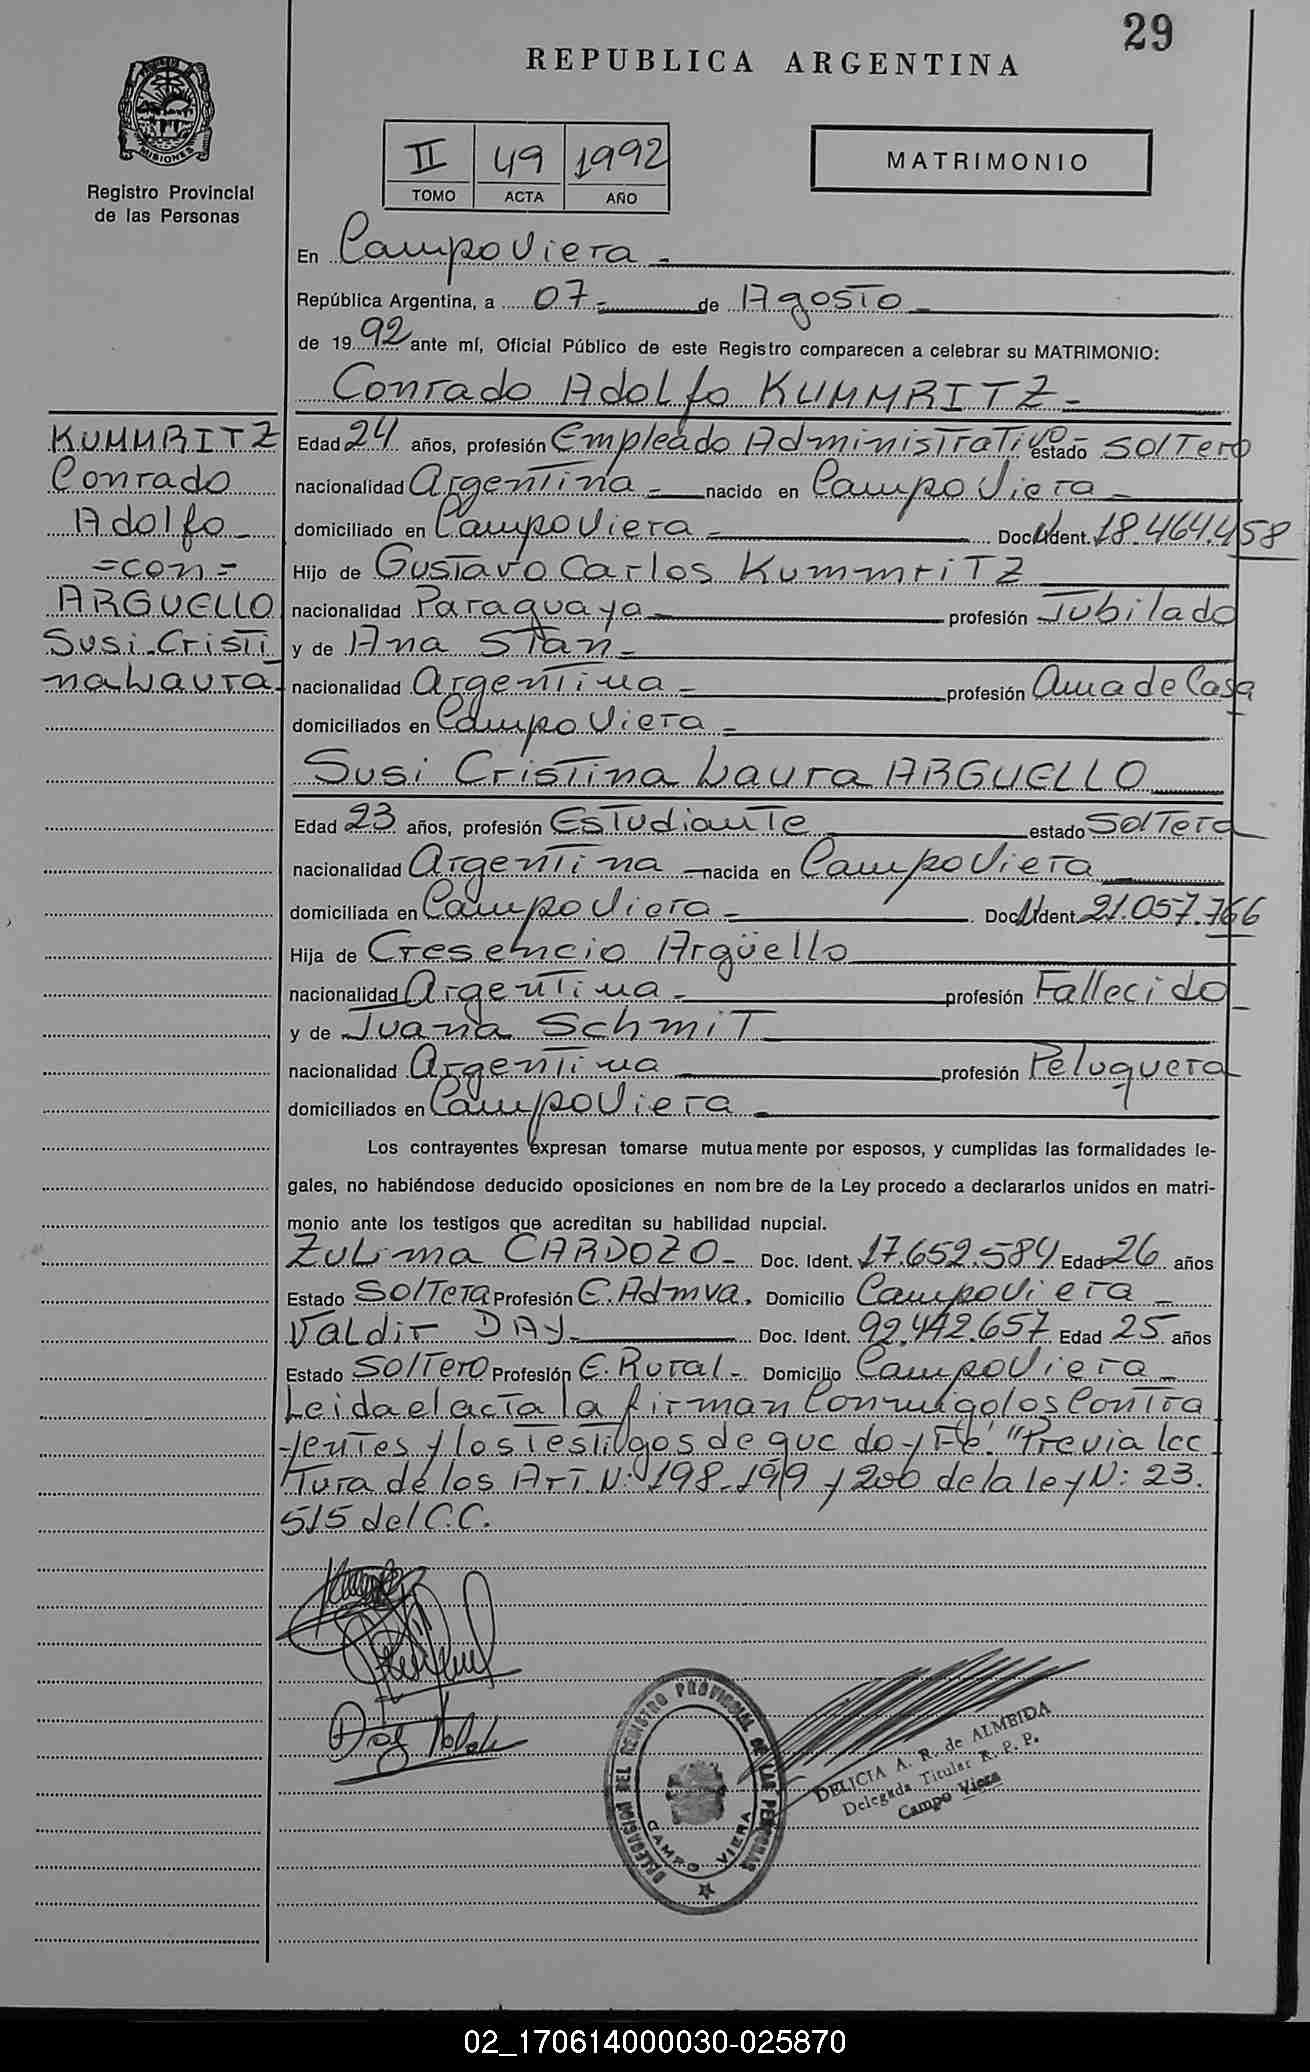 29
REPUBLICA ARGENTINA
MISIONES
Registro Provincial
de las Personas
II 49 1992
TOMO ACTA AÑO
MATRIMONIO
En Campo Viera -
República Argentina, a 07- de Agosto -
de 1992 ante mí, Oficial Público de este Registro comparecen a celebrar su MATRIMONIO:
Conrado Adolfo KUMMRITZ -
KUMMRITZ
Conrado
Adolfo -
=con=
ARGUELLO
Susi Cristi
na Laura -
Edad 24 años, profesión Empleado Administrativo estado Soltero
nacionalidad Argentina - nacido en Campo Viera -
domiciliado en Campo Viera - Doc. Ident. 18.464.458
Hijo de Gustavo Carlos Kummritz
nacionalidad Paraguaya - profesión Jubilado
y de Ana Stan -
nacionalidad Argentina - profesión Ama de Casa
domiciliados en Campo Viera -
Susi Cristina Laura ARGUELLO
Edad 23 años, profesión Estudiante estado Soltera
nacionalidad Argentina - nacida en Campo Viera
domiciliada en Campo Viera - Doc. Ident. 21.057.766
Hija de Cresencio Argüello
nacionalidad Argentina - profesión Fallecido
y de Juana Schmit
nacionalidad Argentina profesión Peluquera
domiciliados en Campo Viera -
Los contrayentes expresan tomarse mutuamente por esposos, y cumplidas las formalidades le-
gales, no habiéndose deducido oposiciones en nombre de la Ley procedo a declararlos unidos en matri-
monio ante los testigos que acreditan su habilidad nupcial.
Zulima CARDOZO - Doc. Ident. 17.652.584 Edad 26 años
Estado Soltera Profesión E. Admva. Domicilio Campo Viera -
Valdir DAY - Doc. Ident. 92.442.657 Edad 25 años
Estado Soltero Profesión E. Rural - Domicilio Campo Viera -
Leida el acta la firman Conmigo los Contra
yentes y los Testigos de que doy Fé. "Previa lec
tura de los Art. N: 198-199 y 200 de la ley N: 23.
515 del C.C.
DELEGACION DEL REGISTRO PROVINCIAL DE LAS PERSONAS
CAMPO VIERA
DELICIA A. R. de ALMEIDA
Delegada Titular R. P. P.
Campo Viera
02_170614000030-025870